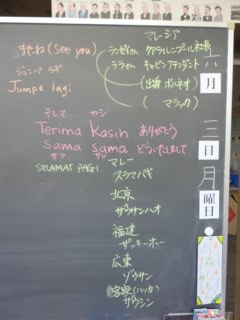 マレーシア
またね (See you)
ジュンパ ラギ
Jumpa lagi
クアラルンプール
キャビンアテンダント
(出身 ボルネオ)
(マラッカ)
テレマ カシ
Terima Kasih ありがとう
Sama Sama どういたしまして
サマ サマ
SELAMAT PAGI マレー
スラマパギ
北京
ザウサンハオ
福建
ザッキーホー
広東
ゾウサン
客家(ハッカ)
サウシン
六
月
三
日
月
曜
日